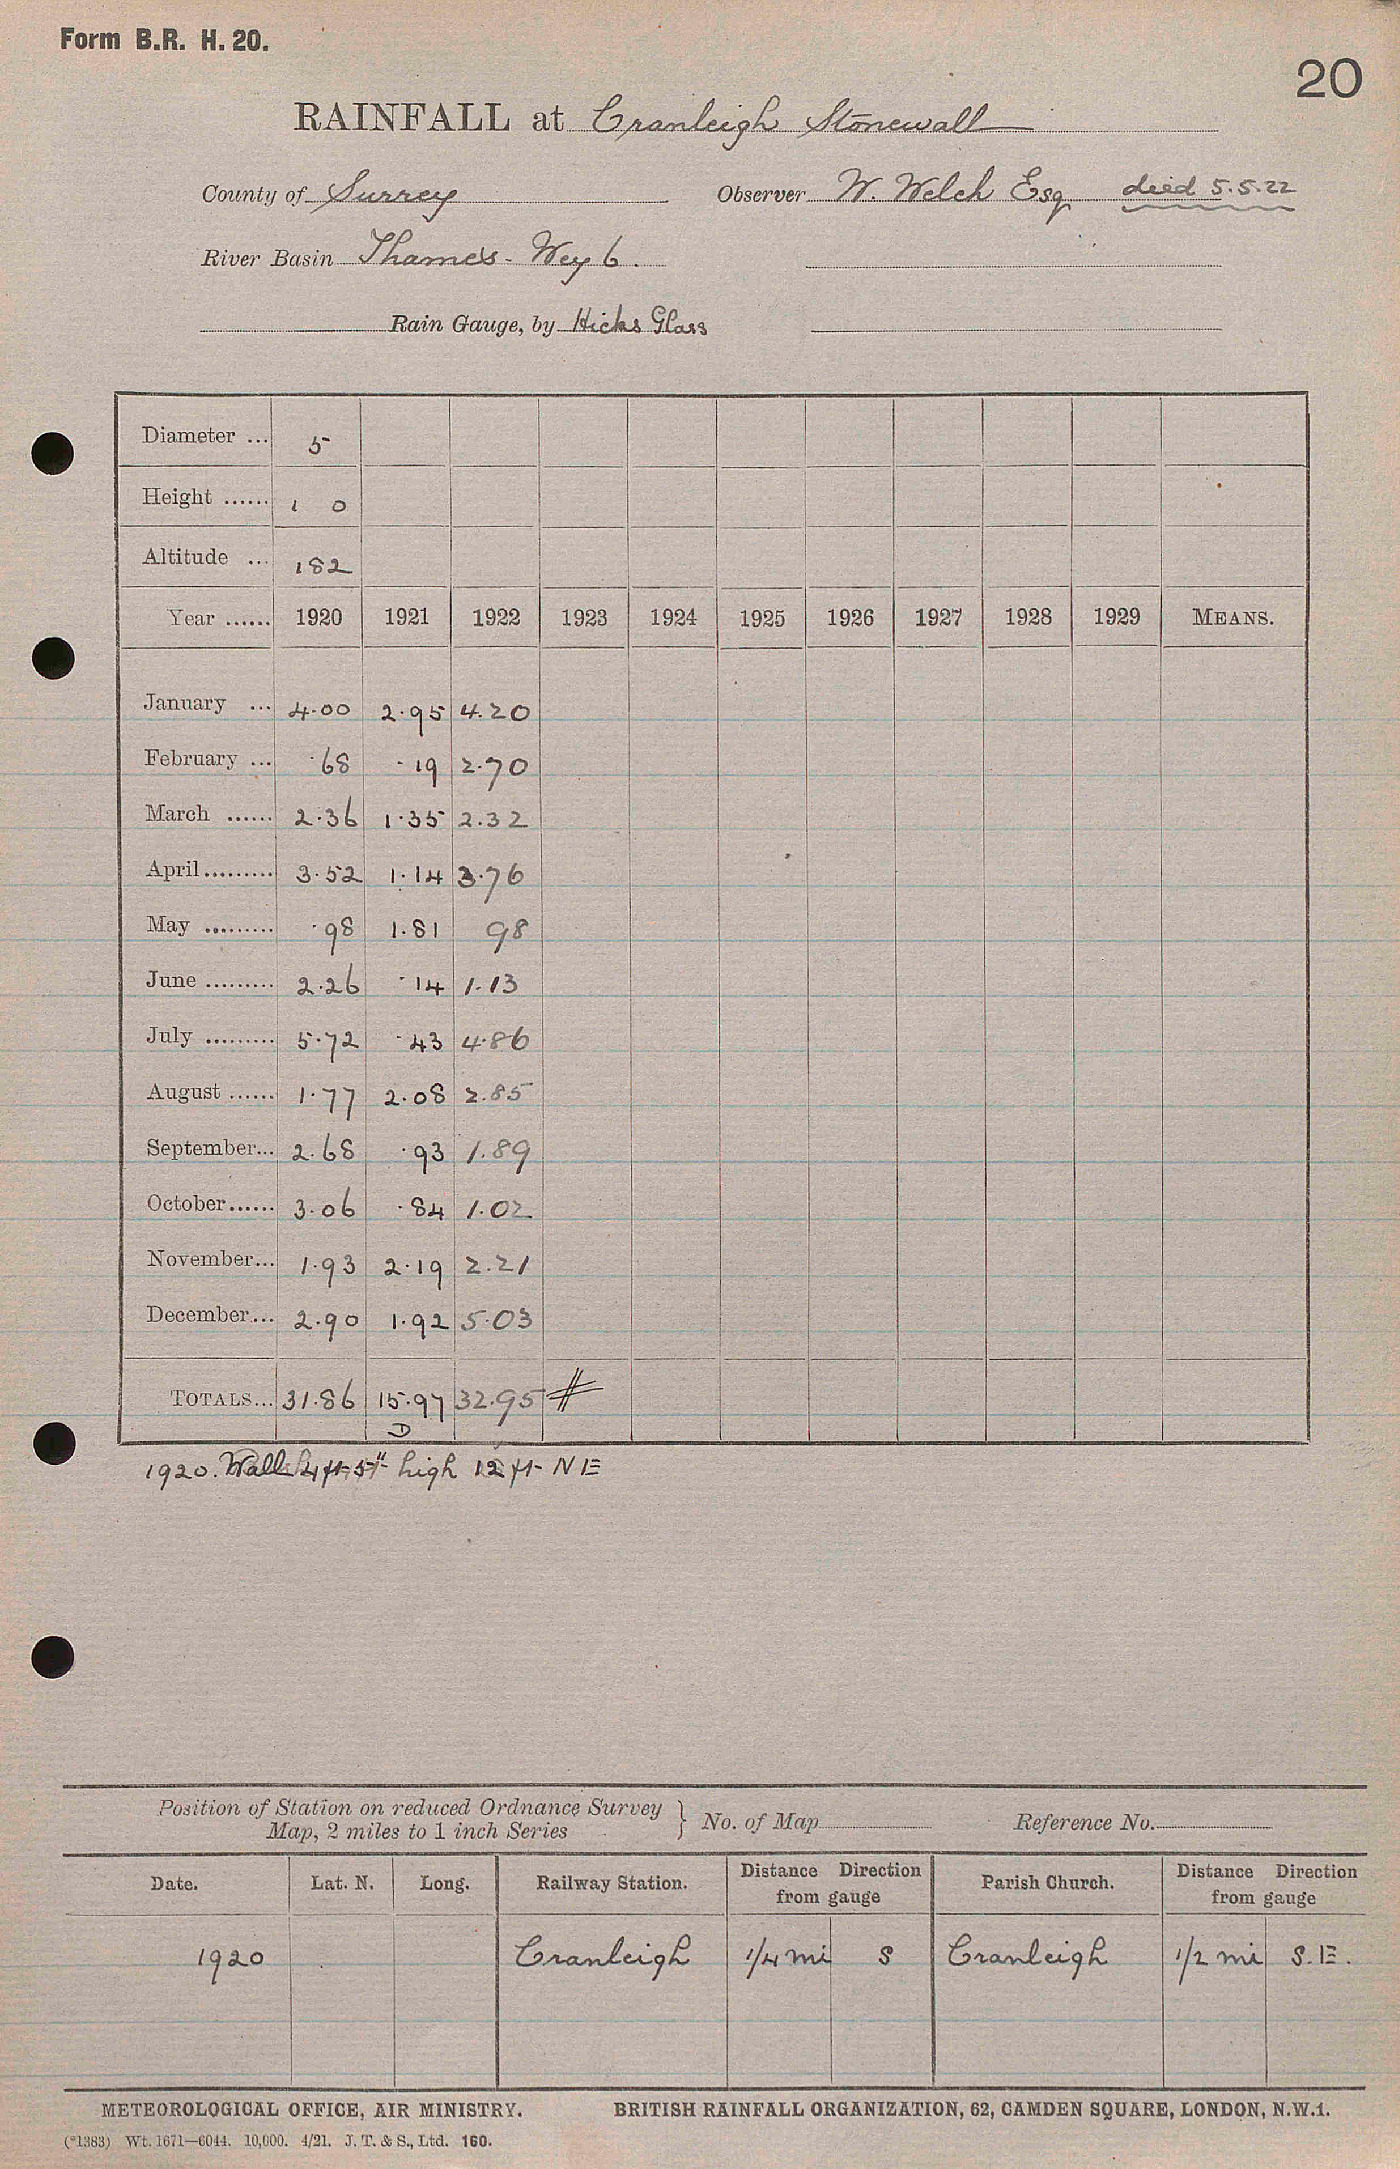 Form B.R. H. 20.
20
RAINFALL at Cranleigh Stonewall
County of Surrey Observer W. Welch Esq died 5.5.22
River Basin Thames - Wey 6.
Rain Gauge, by Hicks Glass
Diameter ... 5
Height ...... 1 0
Altitude ... 182
Year ...... 1920 1921 1922 1923 1924 1925 1926 1927 1928 1929 MEANS.
January ... 4.00 2.95 4.20
February ... .68 .19 2.70
March ...... 2.36 1.35 2.32
April ......... 3.52 1.14 3.76
May ......... .98 1.81 98
June ......... 2.26 .14 1.13
July ......... 5.72 .43 4.86
August ...... 1.77 2.08 2.85
September... 2.68 .93 1.89
October...... 3.06 .84 1.02
November... 1.93 2.19 2.21
December... 2.90 1.92 5.03
TOTALS... 31.86 15.97 32.95 #
D
1920. Wall 4ft 5" high 12 ft NE
Position of Station on reduced Ordnance Survey
Map, 2 miles to 1 inch Series } No. of Map Reference No.
Date. Lat. N. Long. Railway Station. Distance Direction from gauge Parish Church. Distance Direction from gauge
1920 Cranleigh 1/4 mi S Cranleigh 1/2 mi S.E.
METEOROLOGICAL OFFICE, AIR MINISTRY. BRITISH RAINFALL ORGANIZATION, 62, CAMDEN SQUARE, LONDON, N.W.1.
(*1383) Wt. 1671—6044. 10,000. 4/21. J. T. & S., Ltd. 160.